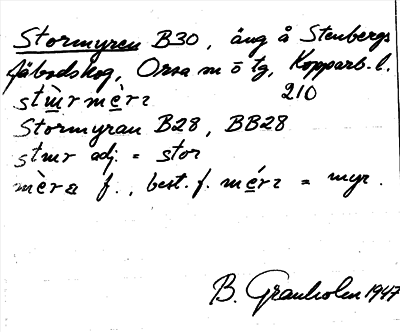 Stormyren B30, äng å Stenbergs
fäbodskog, Orsa sn ö tg, Kopparb. l.
210
Stormyran B28, BB28
adj. = stor
f., best. f. = myr.
B. Granholm 1947